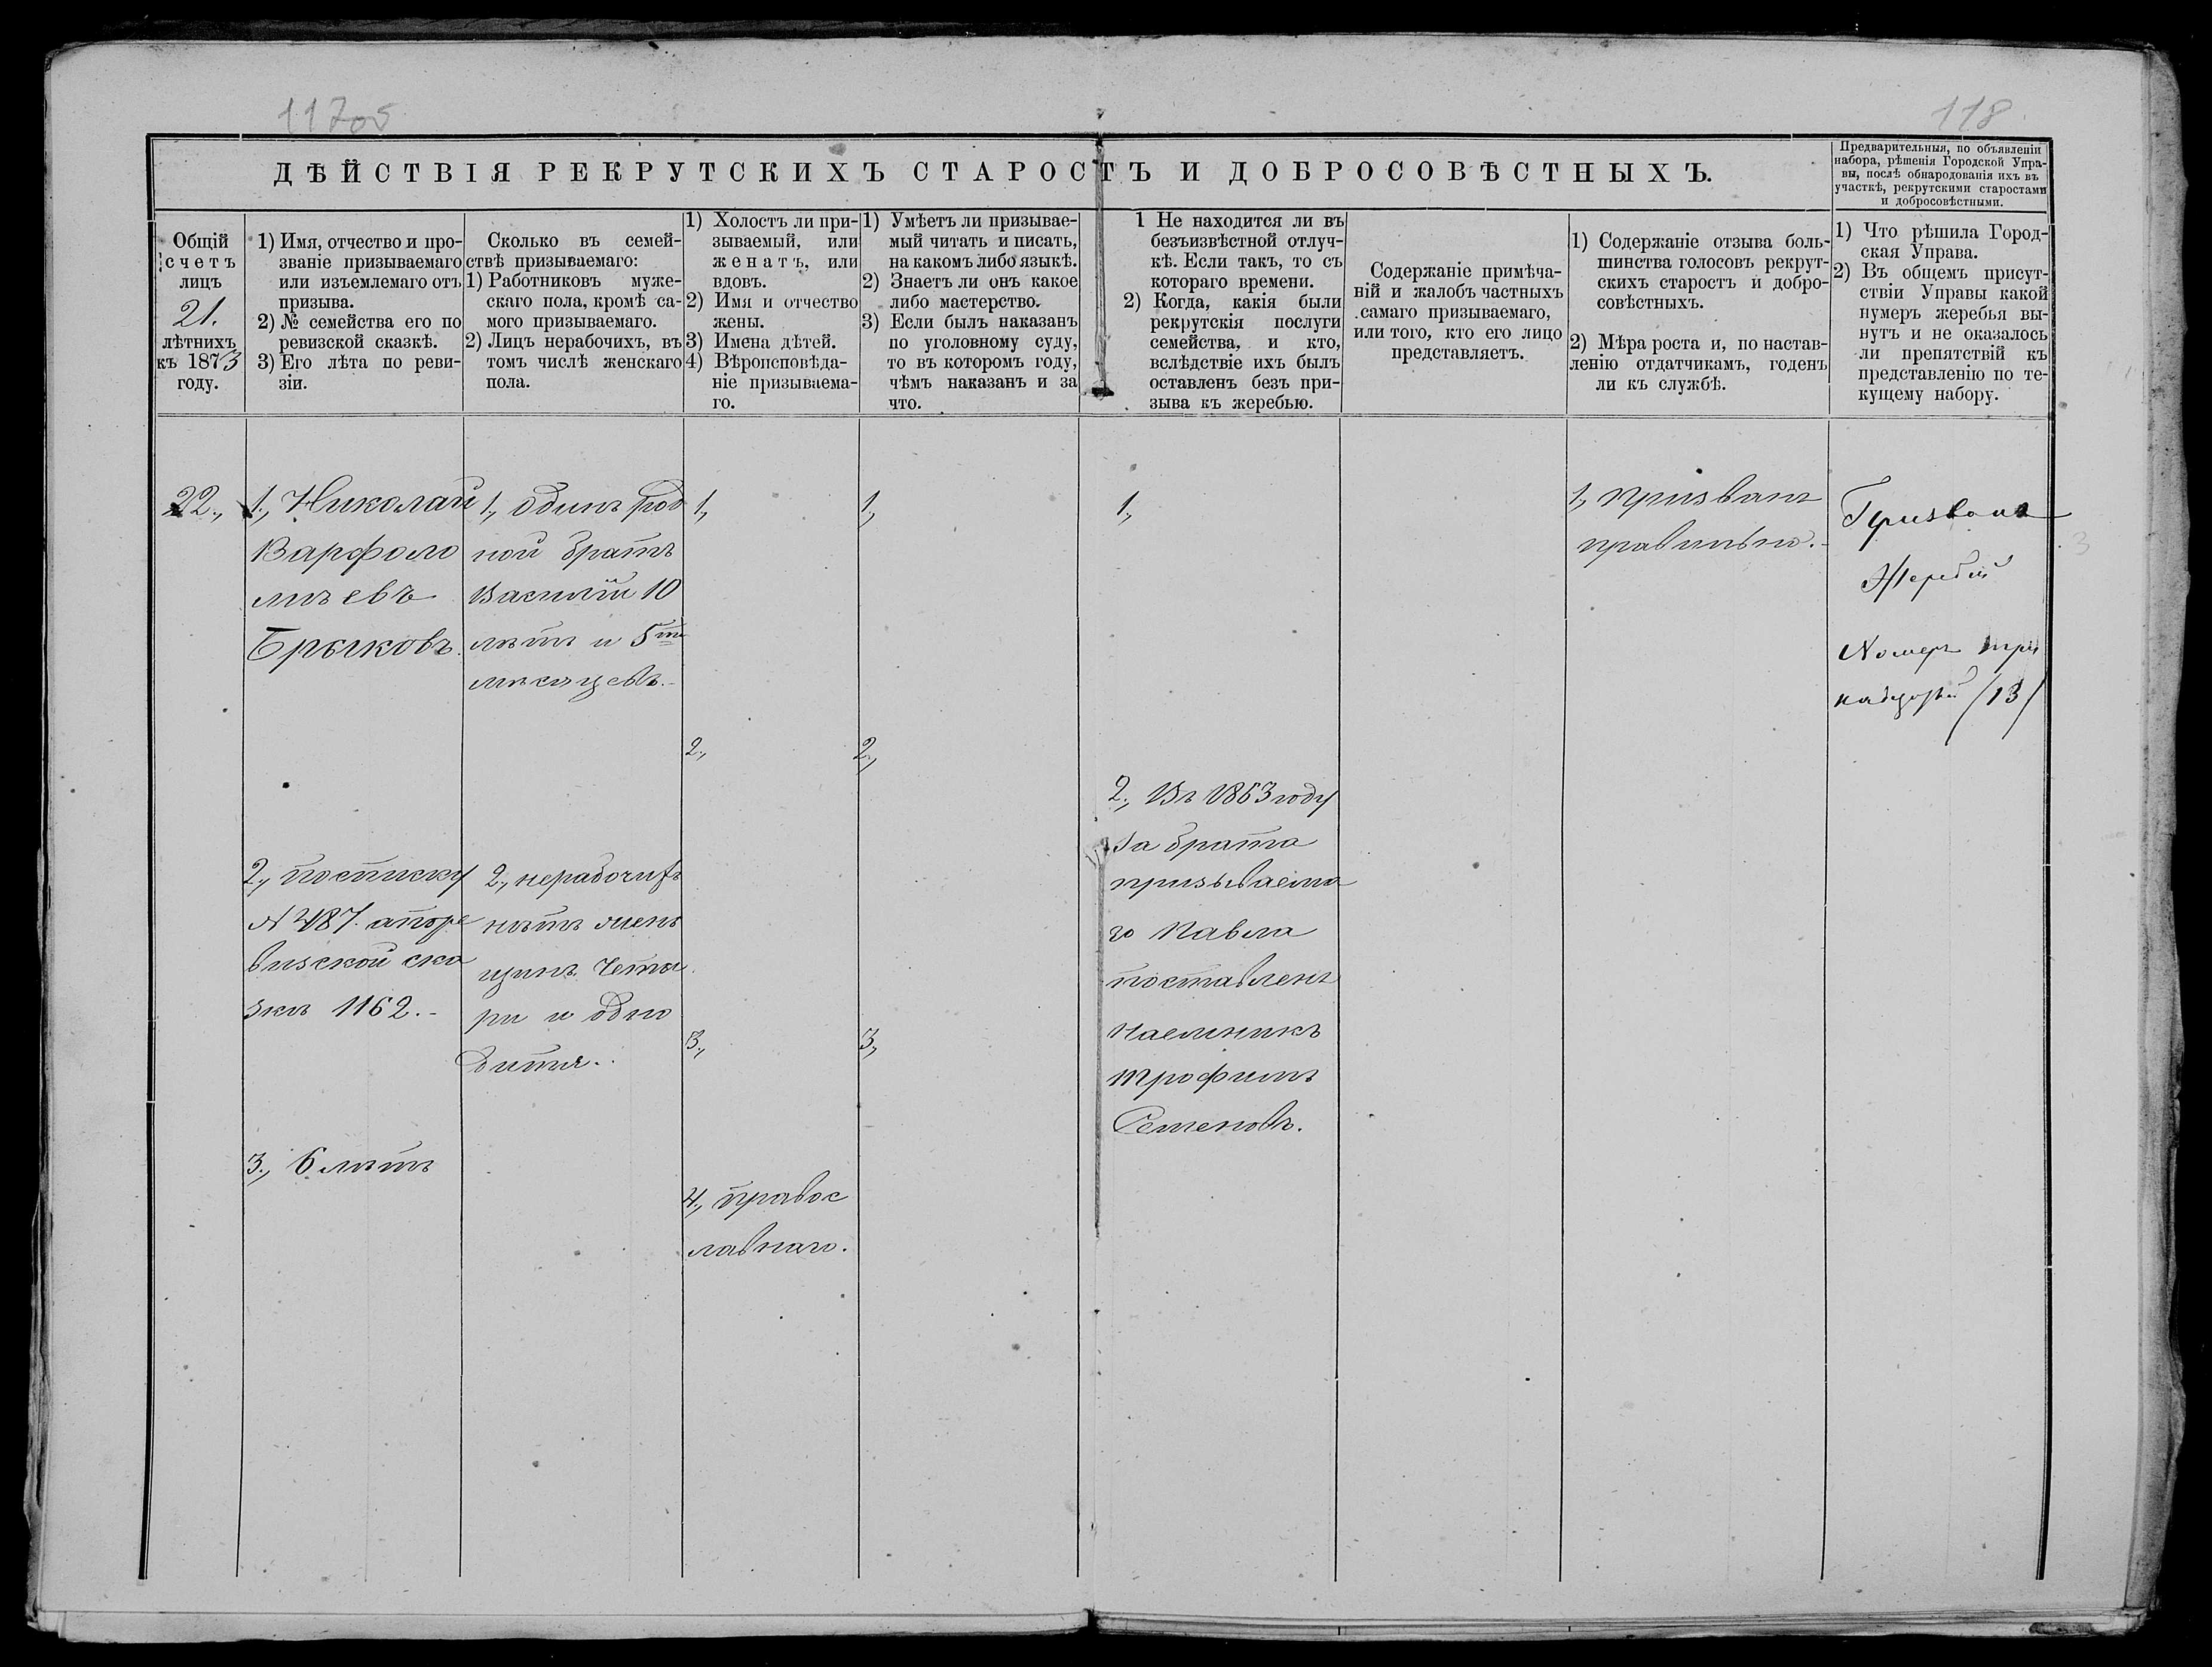 117об
118
ДѢЙСТВІЯ РЕКРУТСКИХЪ СТАРОСТЪ И ДОБРОСОВѢСТНЫХЪ.
Предварительныя, по объявленіи
набора, рѣшенія Городской Упра-
вы, послѣ обнародованія ихъ въ
участкѣ, рекрутскими старостами
и добросовѣстными.
Общій
счетъ
лицъ
21.
лѣтнихъ
къ 1873
году.
1) Имя, отчество и про-
званіе призываемаго
или изъемлемаго отъ
призыва.
2) № семейства его по
ревизской сказкѣ.
3) Его лѣта по реви-
зіи.
Сколько въ семей-
ствѣ призываемаго:
1) Работниковъ муже-
скаго пола, кромѣ са-
мого призываемаго.
2) Лицъ нерабочихъ, въ
томъ числѣ женскаго
пола.
1) Холостъ ли при-
зываемый, или
женатъ, или
вдовъ.
2) Имя и отчество
жены.
3) Имена дѣтей.
4) Вѣроисповѣда-
ніе призываема-
го.
1) Умѣетъ ли призывае-
мый читать и писать,
на какомъ либо языкѣ.
2) Знаетъ ли онъ какое
либо мастерство.
3) Если былъ наказанъ
по уголовному суду,
то въ которомъ году,
чѣмъ наказанъ и за
что.
1 Не находится ли въ
безъизвѣстной отлуч-
кѣ. Если такъ, то съ
котораго времени.
2) Когда, какія были
рекрутскія послуги
семейства, и кто,
вслѣдствіе ихъ былъ
оставленъ безъ при-
зыва къ жеребью.
Содержаніе примѣча-
ній и жалобъ частныхъ
самаго призываемаго,
или того, кто его лицо
представляетъ.
1) Содержаніе отзыва боль-
шинства голосовъ рекрут-
скихъ старостъ и добро-
совѣстныхъ.
2) Мѣра роста и, по настав-
ленію отдатчикамъ, годенъ
ли къ службѣ.
1) Что рѣшила Город-
ская Управа.
2) Въ общемъ присут-
ствіи Управы какой
нумеръ жеребья вы-
нутъ и не оказалось
ли препятствій къ
представленію по те-
кущему набору.
22.,
1., Николай
Варфоло
мѣевъ
Брыковъ.
2., посписку
№ 487. апоре
визской ска
зкѣ 1162.-
3., 6 лѣтъ
1., одинъ род
ной братъ
Василій 10
лѣтъ и 5ти
мѣсяцевъ.-
2., нерабочихъ
нѣтъ жен
щинъ четы
ри и одно
дитя..
1.,
2.,
3.,
4., правос
лавнаго.
1.,
2.,
3.,
1.,
2., Въ 1863 году
за брата
призываема
го Павла
поставленъ
наемникъ
Трофимъ
Семеновъ.
1., призванъ
правильно.-
Призванъ
Жеребій
Номеръ три
надцатый /13/
3